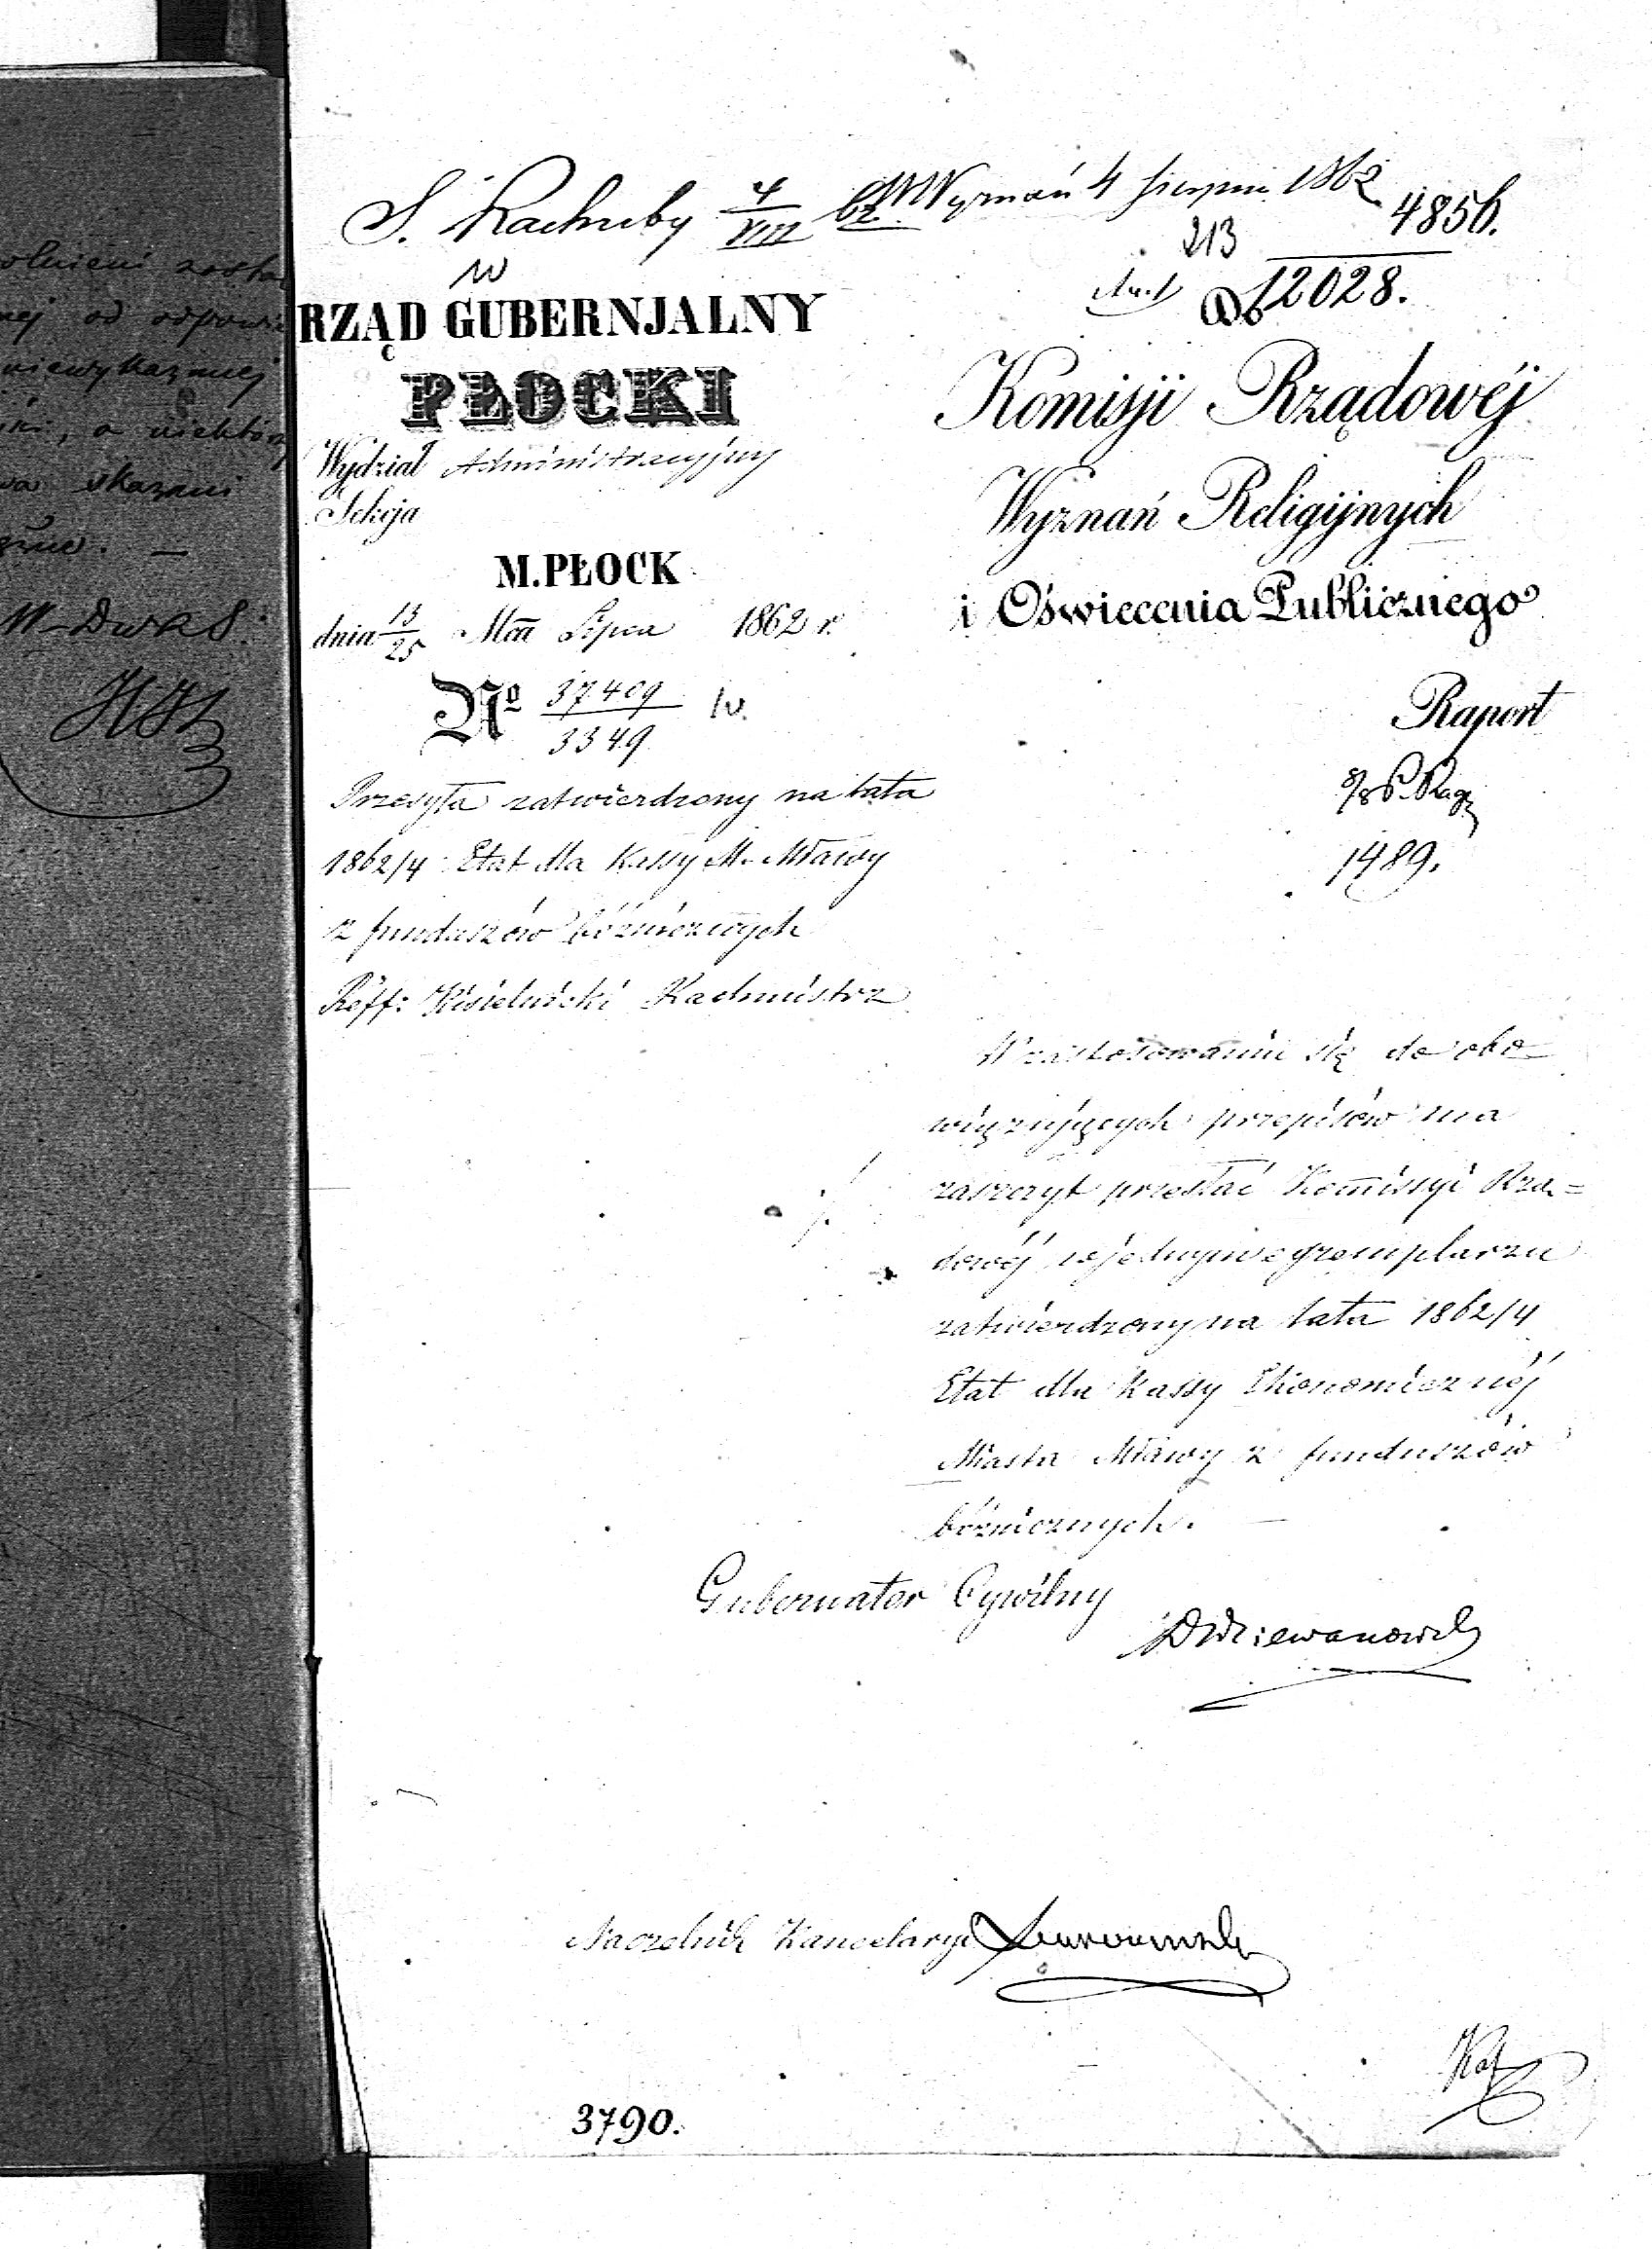 S. Rachuby 4/VIII
W. Wyznań 4 Sierpnia 1862
4856.
213
12028.
RZĄD GUBERNJALNY
PŁOCKI
Wydział Administracyjny
Sekcja
M. PŁOCK
dnia 13/25 Mca Lipca 1862 r.
No 37409/3349
Przesyła zatwierdzony na lata
1862/4 Etat dla Kassy M. Mławy
z funduszów bóżnicznych
Reff: Kisielnicki Rachmistrz
Komisji Rządowéj
Wyznań Religijnych
i Oświecenia Publicznego
Raport
1489.
W zastosowaniu się do obo-
wiązujących przepisów ma
zaszczyt przesłać Kommissyi Rzą=
dowéj w jednym egzemplarzu
zatwierdzony na lata 1862/4
Etat dla Kassy Ekonomicznéj
Miasta Mławy z funduszów
bóżnicznych.
Gubernator Cywilny
Naczelnik Kancelaryi
3790.